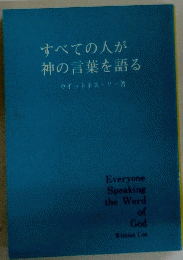 すべての人が
神の言葉を語る
ウイットネス・リー著
Everyone
Speaking
the Word
of
God
Witness Lee